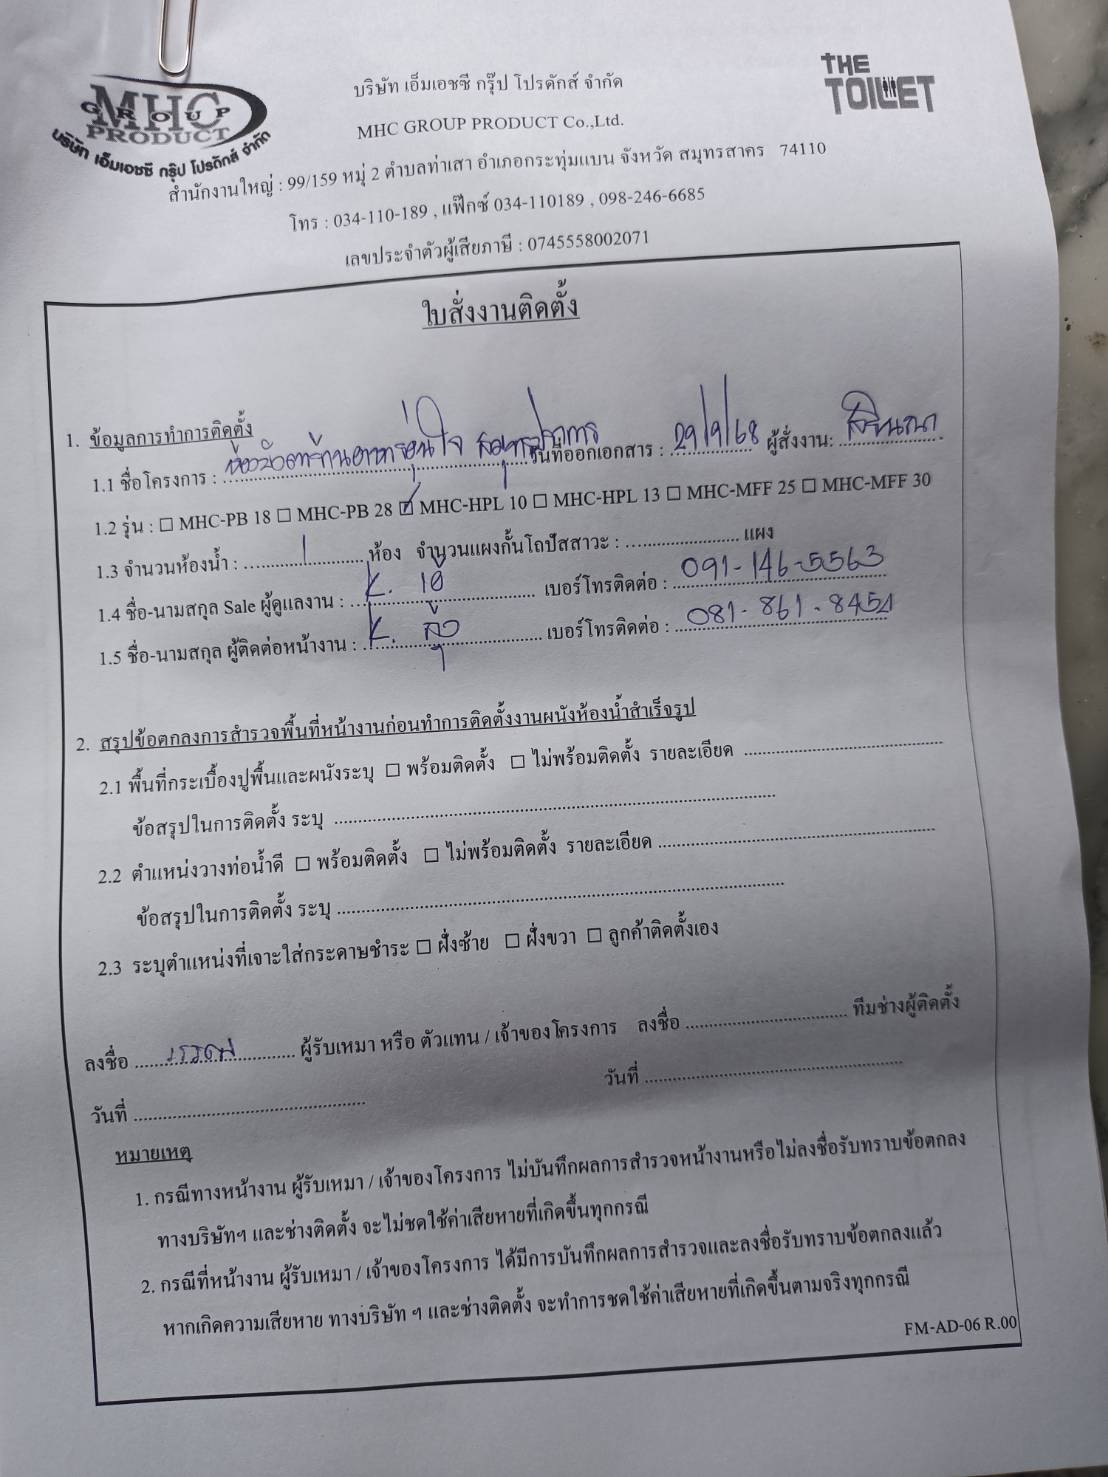 MHC
GROUP
PRODUCT
บริษัท เอ็มเอชซี กรุ๊ป โปรดักส์ จำกัด
THE
TOILET
บริษัท เอ็มเอชซี กรุ๊ป โปรดักส์ จำกัด
MHC GROUP PRODUCT Co.,Ltd.
สำนักงานใหญ่ : 99/159 หมู่ 2 ตำบลท่าเสา อำเภอกระทุ่มแบน จังหวัด สมุทรสาคร 74110
โทร : 034-110-189 , แฟ๊กซ์ 034-110189 , 098-246-6685
เลขประจำตัวผู้เสียภาษี : 0745558002071
ใบสั่งงานติดตั้ง
1. ข้อมูลการทำการติดตั้ง
1.1 ชื่อโครงการ : สมุทรปราการ วันที่ออกเอกสาร : 29/9/68 ผู้สั่งงาน:
1.2 รุ่น : ☐ MHC-PB 18 ☐ MHC-PB 28 ☑ MHC-HPL 10 ☐ MHC-HPL 13 ☐ MHC-MFF 25 ☐ MHC-MFF 30
1.3 จำนวนห้องน้ำ : 1 ห้อง จำนวนแผงกั้นโถปัสสาวะ : แผง
1.4 ชื่อ-นามสกุล Sale ผู้ดูแลงาน : K. เอ๋ เบอร์โทรติดต่อ : 091-146-5563
1.5 ชื่อ-นามสกุล ผู้ติดต่อหน้างาน : K. เบอร์โทรติดต่อ : 081-861-8454
2. สรุปข้อตกลงการสำรวจพื้นที่หน้างานก่อนทำการติดตั้งงานผนังห้องน้ำสำเร็จรูป
2.1 พื้นที่กระเบื้องปูพื้นและผนังระบุ ☐ พร้อมติดตั้ง ☐ ไม่พร้อมติดตั้ง รายละเอียด
ข้อสรุปในการติดตั้ง ระบุ
2.2 ตำแหน่งวางท่อน้ำดี ☐ พร้อมติดตั้ง ☐ ไม่พร้อมติดตั้ง รายละเอียด
ข้อสรุปในการติดตั้ง ระบุ
2.3 ระบุตำแหน่งที่เจาะใส่กระดาษชำระ ☐ ฝั่งซ้าย ☐ ฝั่งขวา ☐ ลูกค้าติดตั้งเอง
ลงชื่อ ผู้รับเหมา หรือ ตัวแทน / เจ้าของโครงการ ลงชื่อ ทีมช่างผู้ติดตั้ง
วันที่ วันที่
หมายเหตุ
1. กรณีทางหน้างาน ผู้รับเหมา / เจ้าของโครงการ ไม่บันทึกผลการสำรวจหน้างานหรือไม่ลงชื่อรับทราบข้อตกลง
ทางบริษัทฯ และช่างติดตั้ง จะไม่ชดใช้ค่าเสียหายที่เกิดขึ้นทุกกรณี
2. กรณีที่หน้างาน ผู้รับเหมา / เจ้าของโครงการ ได้มีการบันทึกผลการสำรวจและลงชื่อรับทราบข้อตกลงแล้ว
หากเกิดความเสียหาย ทางบริษัท ฯ และช่างติดตั้ง จะทำการชดใช้ค่าเสียหายที่เกิดขึ้นตามจริงทุกกรณี
FM-AD-06 R.00